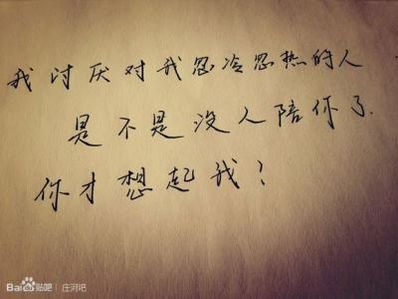 我讨厌对我忽冷忽热的人
是不是没人陪你了.
你才想起我?
Bai贴吧 | 庄河吧